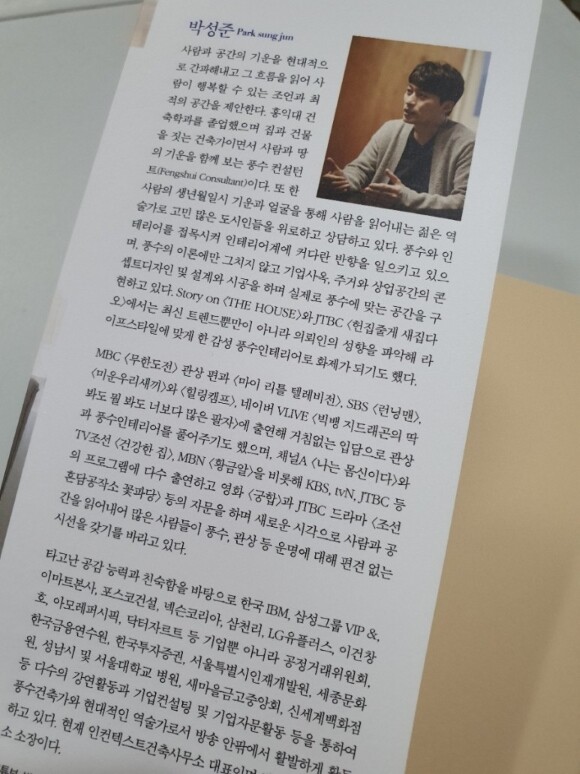 박성준 Park sung jun
사람과 공간의 기운을 현대적으
로 간파해내고 그 흐름을 읽어 사
람이 행복할 수 있는 조언과 최
적의 공간을 제안한다. 홍익대 건
축학과를 졸업했으며 집과 건물
을 짓는 건축가이면서 사람과 땅
의 기운을 함께 보는 풍수 컨설턴
트(Fengshui Consultant)이다. 또 한
사람의 생년월일시 기운과 얼굴을 통해 사람을 읽어내는 젊은 역
술가로 고민 많은 도시인들을 위로하고 상담하고 있다. 풍수와 인
테리어를 접목시켜 인테리어계에 커다란 반향을 일으키고 있으
며, 풍수의 이론에만 그치지 않고 기업사옥, 주거와 상업공간의 콘
셉트디자인 및 설계와 시공을 하며 실제로 풍수에 맞는 공간을 구
현하고 있다. Story on 〈THE HOUSE〉와 JTBC 〈헌집줄게 새집다
오〉에서는 최신 트렌드뿐만이 아니라 의뢰인의 성향을 파악해 라
이프스타일에 맞게 한 감성 풍수인테리어로 화제가 되기도 했다.
MBC 〈무한도전〉 관상 편과 〈마이 리틀 텔레비전〉, SBS 〈런닝맨〉,
〈미운우리새끼〉와 〈힐링캠프〉, 네이버 VLIVE 〈빅뱅 지드래곤의 딱
봐도 뭘 봐도 너보다 많은 팔자〉에 출연해 거침없는 입담으로 관상
과 풍수인테리어를 풀어주기도 했으며, 채널A 〈나는 몸신이다〉와
TV조선 〈건강한 집〉, MBN 〈황금알〉을 비롯해 KBS, tvN, JTBC 등
의 프로그램에 다수 출연하고 영화 〈궁합〉과 JTBC 드라마 〈조선
혼담공작소 꽃파당〉 등의 자문을 하며 새로운 시각으로 사람과 공
간을 읽어내어 많은 사람들이 풍수, 관상 등 운명에 대해 편견 없는
시선을 갖기를 바라고 있다.
타고난 공감 능력과 친숙함을 바탕으로 한국 IBM, 삼성그룹 VIP &,
이마트본사, 포스코건설, 넥슨코리아, 삼천리, LG유플러스, 이건창
호, 아모레퍼시픽, 닥터자르트 등 기업뿐 아니라 공정거래위원회,
한국금융연수원, 한국투자증권, 서울특별시인재개발원, 세종문화
원, 성남시 및 서울대학교 병원, 새마을금고중앙회, 신세계백화점
등 다수의 강연활동과 기업컨설팅 및 기업자문활동 등을 통하여
풍수건축가와 현대적인 역술가로서 방송 안팎에서 활발하게 활동
하고 있다. 현재 인컨텍스트건축사무소 대표이며
소 소장이다.